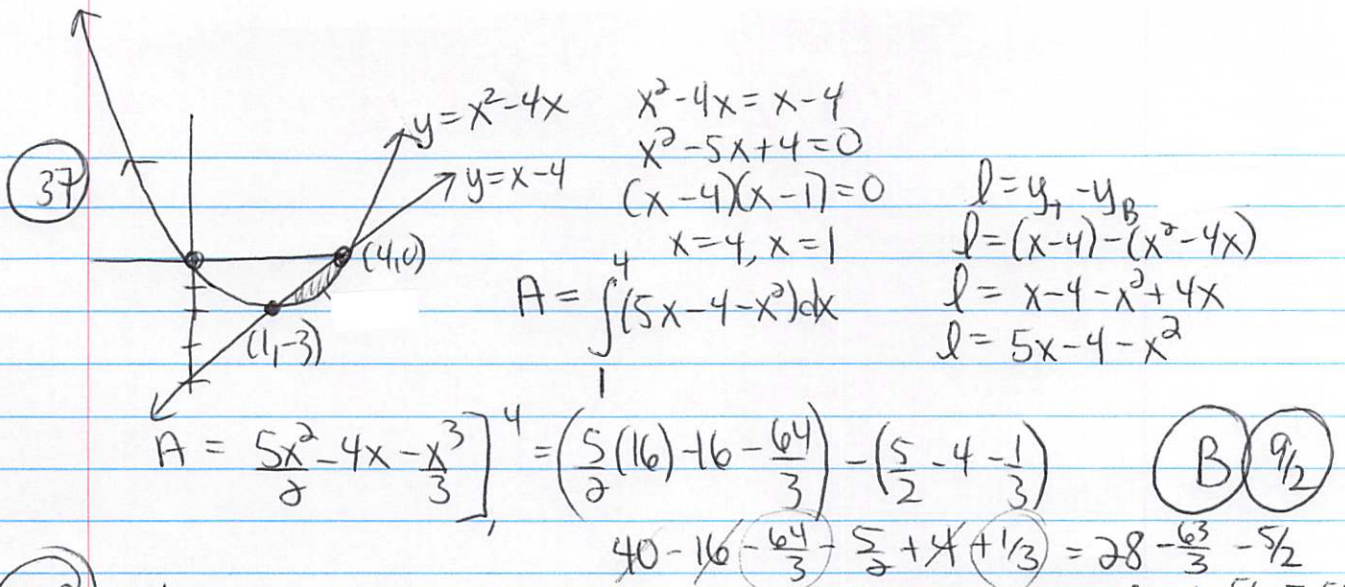 37
y=x²-4x
y=x-4
(4,0)
(1,-3)
x²-4x=x-4
x²-5x+4=0
(x-4)(x-1)=0
x=4, x=1
A = ∫₁⁴(5x-4-x²)dx
l=y_T-y_B
l=(x-4)-(x²-4x)
l= x-4-x²+4x
l= 5x-4-x²
A = 5x²/2 -4x - x³/3 ]₁⁴ = (5/2(16)-16-64/3) - (5/2-4-1/3)
B 9/2
40-16-64/3-5/2+4+1/3 = 28-63/3-5/2